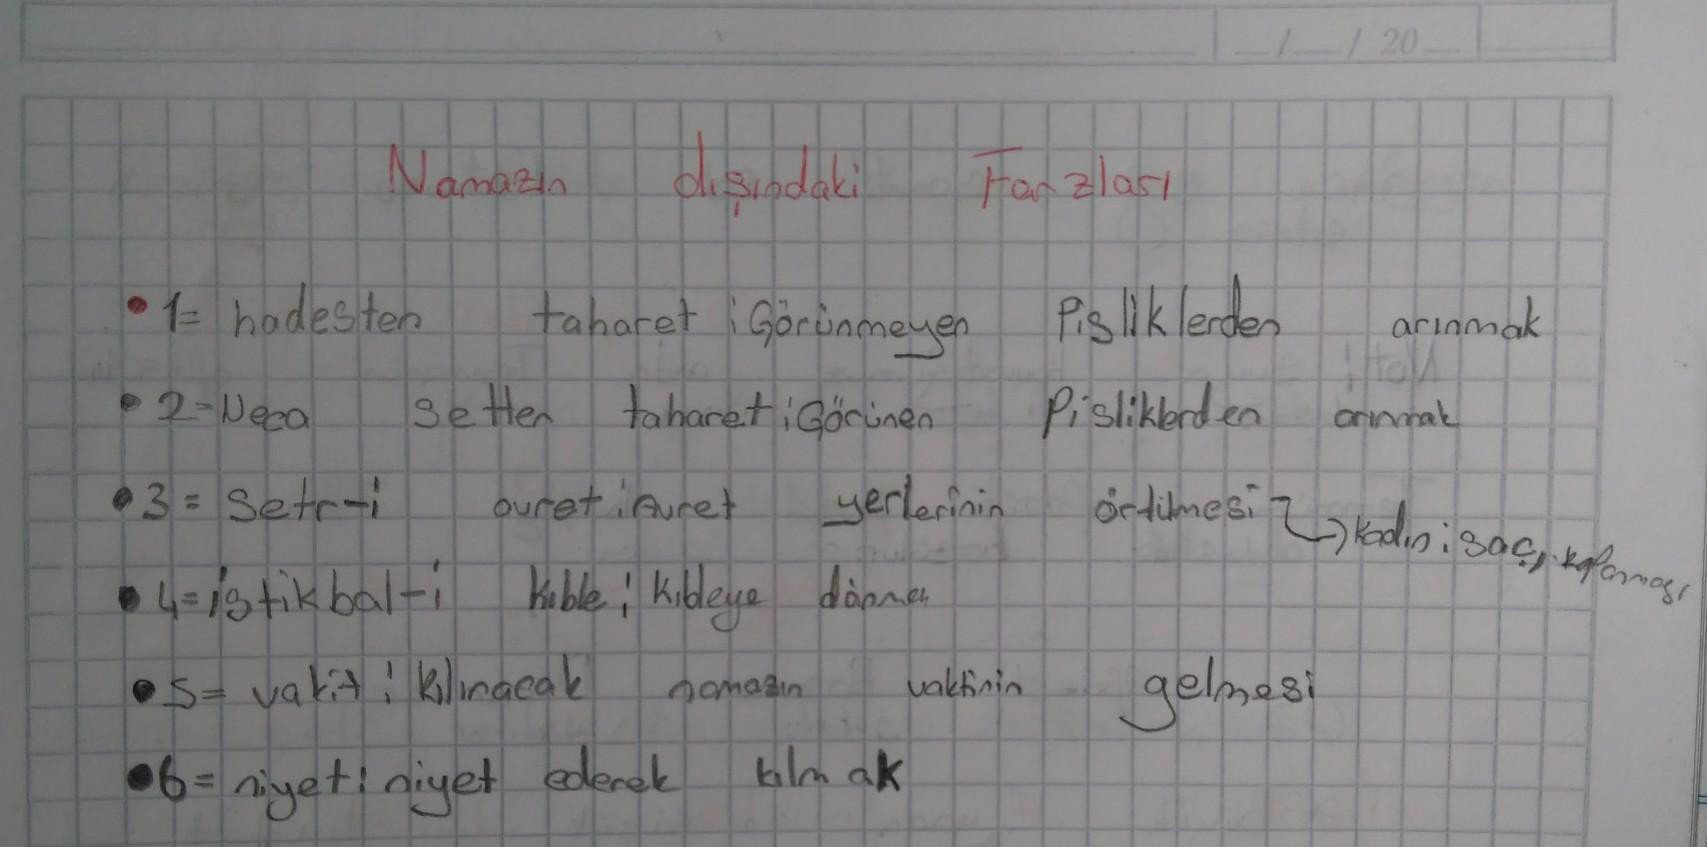 _/_/20_
Namazın dışındaki Farzları
• 1= hadesten taharet ; Görünmeyen Pisliklerden arınmak
• 2=Neca setten taharet ; Görünen Pisliklerden arınmak
• 3= Setr-i avret ; Avret yerlerinin örtülmesi → kadın : saç, kapanması
• 4=istikbal-i Kıble ; Kıbleye dönmek
• 5= vakit : kılınacak namazın vaktinin gelmesi
• 6= niyet : niyet ederek kılmak